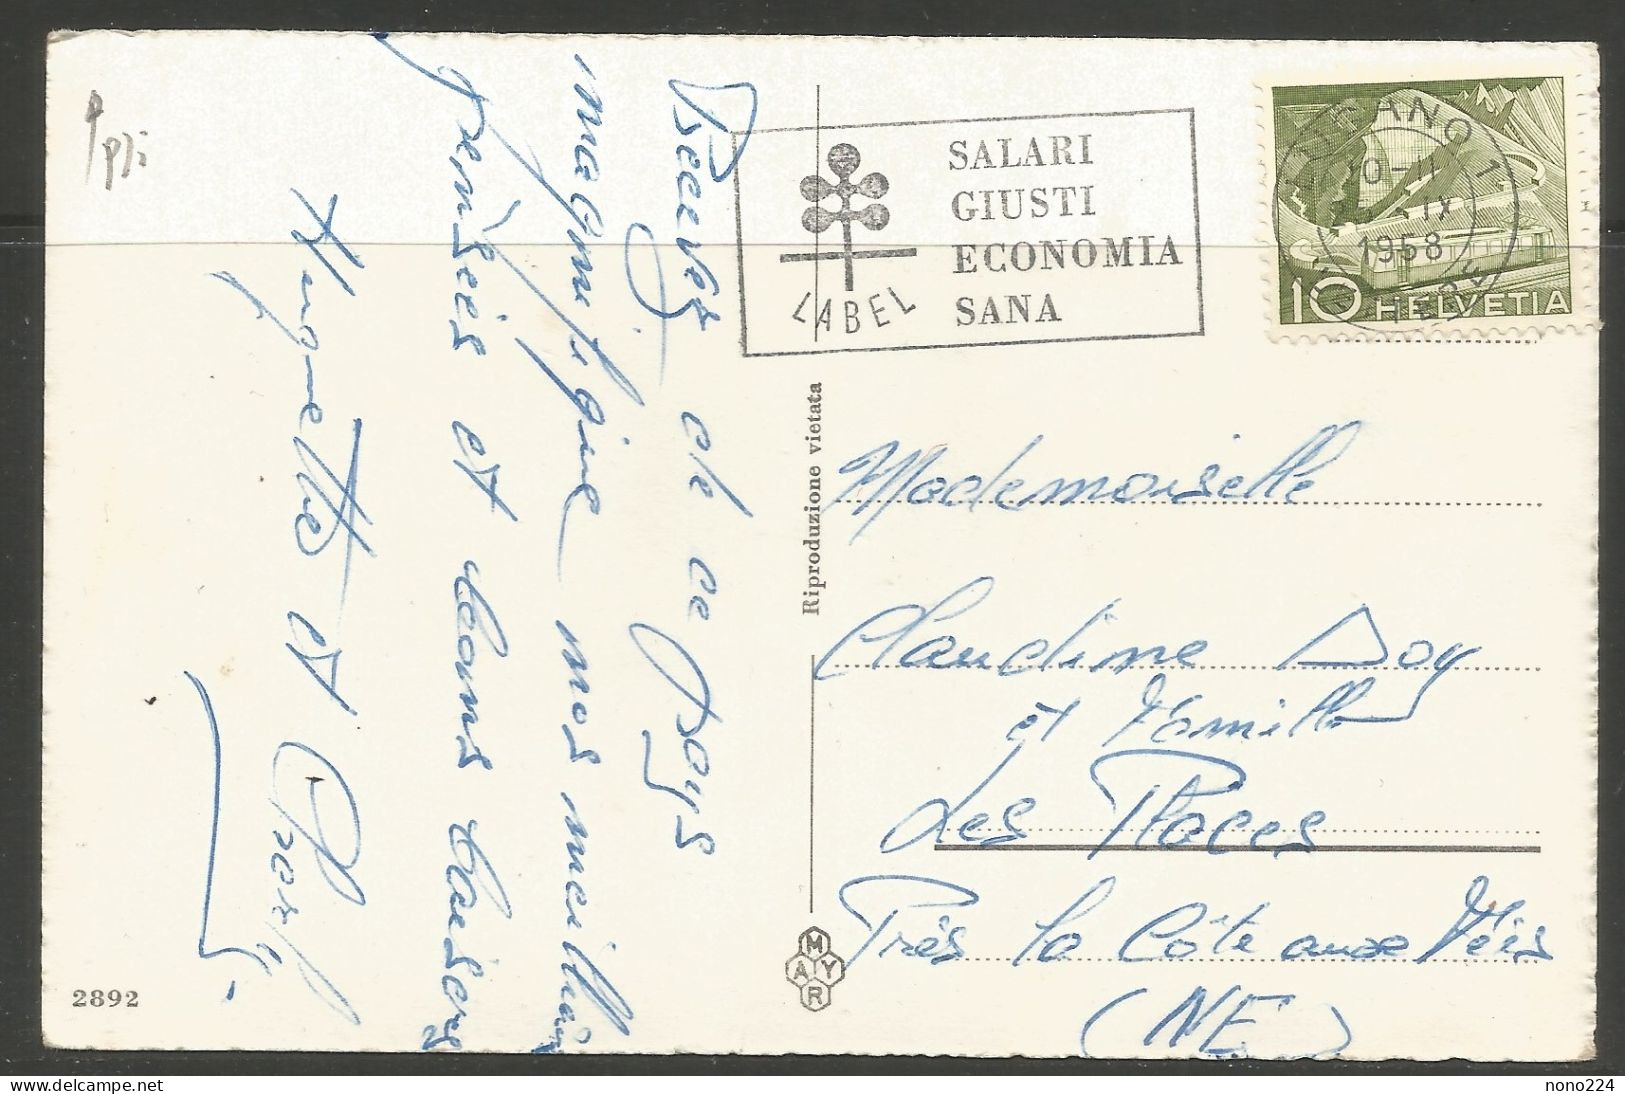 Recevez de ce pays
magnifique nos meilleures
pensées et bons baisers
Huguette et
SALARI
GIUSTI
ECONOMIA
SANA
LABEL
LUGANO 1
10-11
IX
1958
10 HELVETIA
Riproduzione vietata
Mademoiselle
Claudine Doy
et Famille
Les Places
Près la Côte aux Fées
(NE)
MAYR
2892
nono224